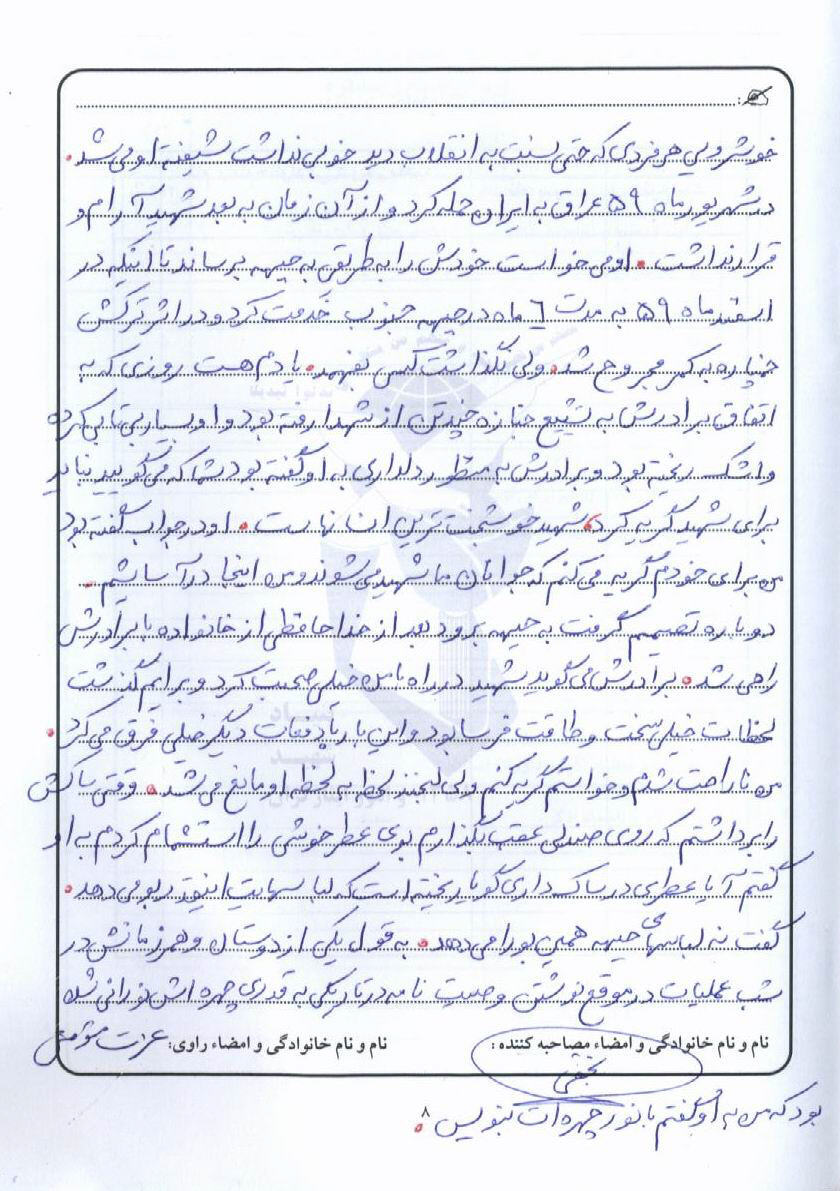 خوشرویی هر فردی که حتی نسبت به انقلاب دید خوبی نداشت شیفته او می شد.
در شهریور ماه ۵۹ عراق به ایران حمله کرد و از آن زمان به بعد شهید آرام و
قرار نداشت. او می خواست خودش را به طریقی به جبهه برساند تا اینکه در
اسفند ماه ۵۹ به مدت ۶ ماه در جبهه جنوب خدمت کرد و در اثر ترکش
خمپاره به کمر مجروح شد. ولی نگذاشت کسی بفهمد. یادم هست روزی که به
اتفاق برادرش به تشییع جنازه چند تن از شهدا رفته بود و او بسیار بی تابی کرده
و اشک ریخته بود و برادرش به منظور دلداری به او گفته بود شما که می گویید نباید
برای شهید گریه کرد، شهید خوشبخت ترین انسانهاست. او در جواب گفته بود
من برای خودم گریه می کنم که جوانان ما شهید می شوند و من اینجا در آسایشم.
دوباره تصمیم گرفت به جبهه برود بعد از خداحافظی از خانواده با برادرش
راهی شد. برادرش می گوید شهید در راه با من خیلی صحبت کرد و برایم گذشت
لحظات خیلی سخت و طاقت فرسا بود و این بار با دفعات دیگر خیلی فرق می کرد.
من ناراحت شدم و خواستم گریه کنم ولی لبخند لحظه به لحظه او مانع می شد. وقتی ساکش
را برداشتم که روی صندلی عقب بگذارم بوی عطر خوشی را استشمام کردم به او
گفتم آیا عطری در ساک داری گویا ریخته است که لباسهایت اینقدر بو می دهد.
گفت نه لباسهای جبهه همین بو را می دهد. به قول یکی از دوستان و همرزمانش در
شب عملیات در موقع نوشتن وصیت نامه در تاریکی به قدری چهره اش نورانی شده
نام و نام خانوادگی و امضاء مصاحبه کننده : نجفی نام و نام خانوادگی و امضاء راوی: عزت
بود که من به او گفتم با نور چهره ات بنویس.
۸